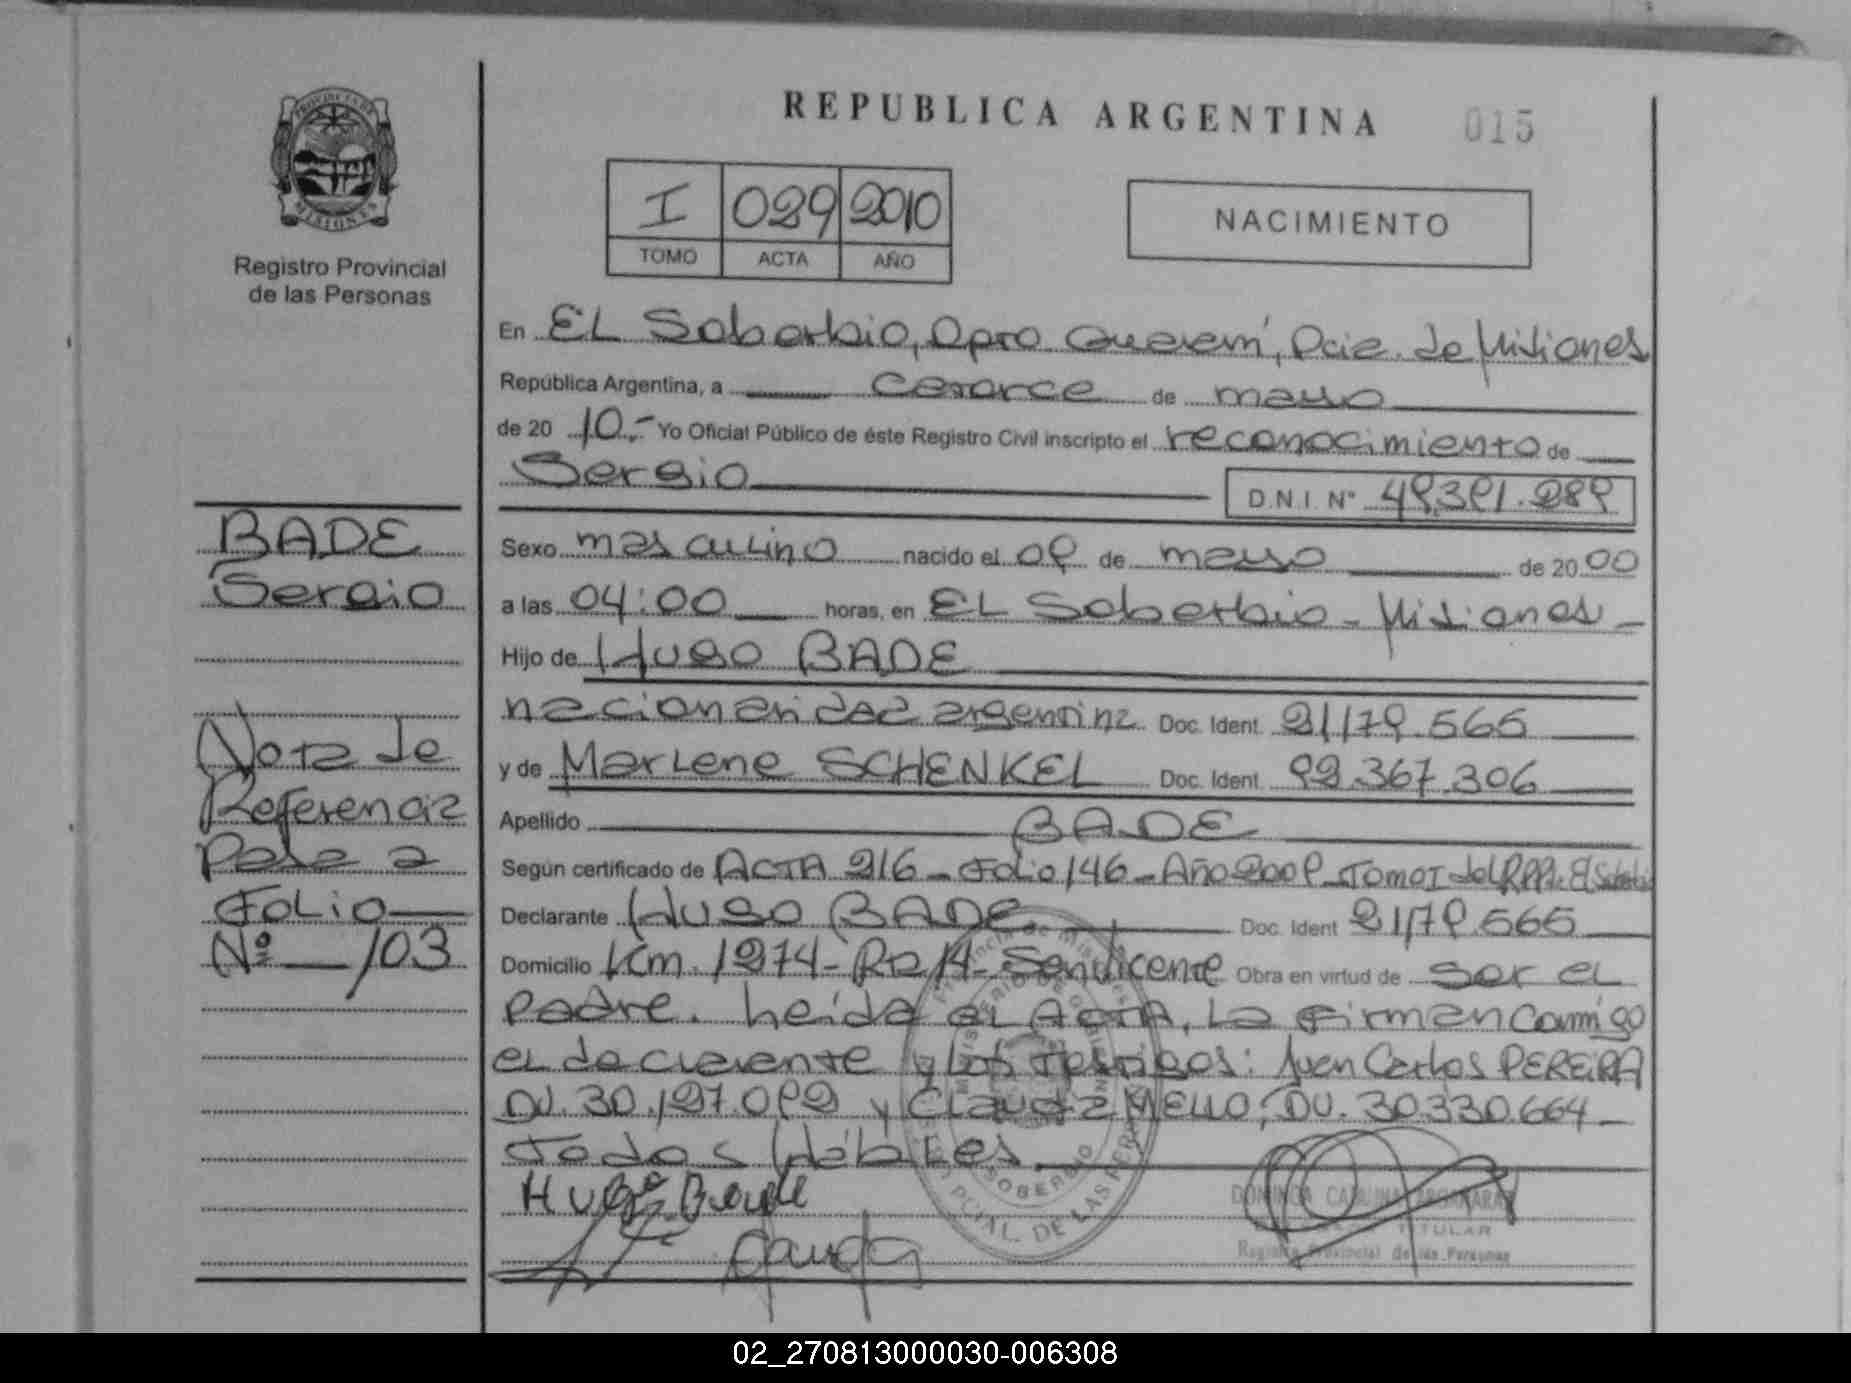 REPUBLICA ARGENTINA
015
PROVINCIA DE MISIONES
Registro Provincial
de las Personas
I 029 2010
TOMO ACTA AÑO
NACIMIENTO
En EL Soberbio, Dpto Guaraní, Pcia. de Misiones
República Argentina, a catorce de mayo
de 20 10.- Yo Oficial Público de éste Registro Civil inscripto el reconocimiento de
Sergio
D.N.I. Nº 49.391.289
BADE
Sergio
Sexo masculino nacido el 09 de mayo de 20 00
a las 04:00 horas, en EL Soberbio - Misiones -
Hijo de Hugo BADE
nacionalidad argentina Doc. Ident. 21.179.565
y de Marlene SCHENKEL Doc. Ident. 92.367.306
Apellido BADE
Según certificado de ACTA 216 - Folio 146 - Año 2009 - Tomo I del RPP. El Soberbio
Declarante Hugo BADE Doc. Ident 21.179.565
Domicilio Km. 1274 - RN 14 - San Vicente Obra en virtud de ser el
padre. Leída el ACTA, la firman conmigo
el declarante y los testigos: Juan Carlos PEREIRA
DU. 30.197.092 y Claudia MELLO, DU. 30.330.664 -
Todos Hábiles
Nota de
Referencia
Pasa a
Folio
Nº 103
Hugo Bade
DOMINGA CATALINA
TITULAR
Registro Provincial de las Personas
SOBERBIO
PCIAL. DE LAS PER
02_270813000030-006308